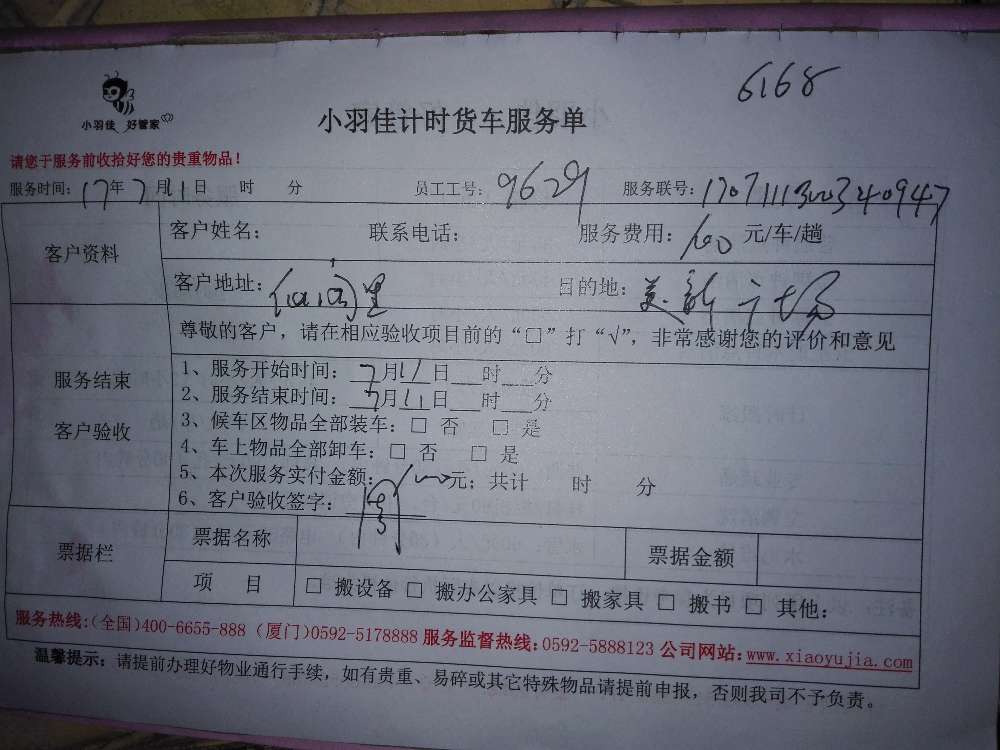 6168
小羽佳 好管家
小羽佳计时货车服务单
请您于服务前收拾好您的贵重物品！
服务时间：17年7月11日 时 分 员工工号：9629 服务联号：170711130034 0947
客户资料 客户姓名： 联系电话： 服务费用：160元/车/趟
客户地址： 里 目的地：美新广场
尊敬的客户，请在相应验收项目前的“□”打“√”，非常感谢您的评价和意见
服务结束 客户验收
1、服务开始时间：7月11日 时 分
2、服务结束时间：7月11日 时 分
3、候车区物品全部装车：□ 否 □ 是
4、车上物品全部卸车：□ 否 □ 是
5、本次服务实付金额： 元；共计 时 分
6、客户验收签字：
票据栏 票据名称 票据金额
项 目 □ 搬设备 □ 搬办公家具 □ 搬家具 □ 搬书 □ 其他：
服务热线：(全国)400-6655-888 (厦门)0592-5178888 服务监督热线：0592-5888123 公司网站：www.xiaoyujia.com
温馨提示：请提前办理好物业通行手续，如有贵重、易碎或其它特殊物品请提前申报，否则我司不予负责。